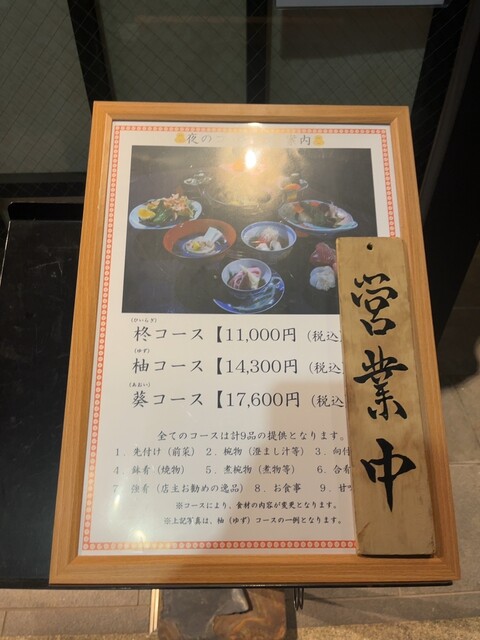 夜の
内
(ひいらぎ)
柊コース【11,000円（税込
(ゆず)
柚コース【14,300円（税込
(あおい)
葵コース【17,600円（税込
全てのコースは計9品の提供となります。
1．先付け（前菜） 2．椀物（澄まし汁等） 3．向付
4．鉢肴（焼物） 5．煮椀物（煮物等） 6．合肴
7．強肴（店主お勧めの逸品） 8．お食事 9．甘
※コースにより、食材の内容が変更となります。
※上記写真は、柚（ゆず）コースの一例となります。
営業中